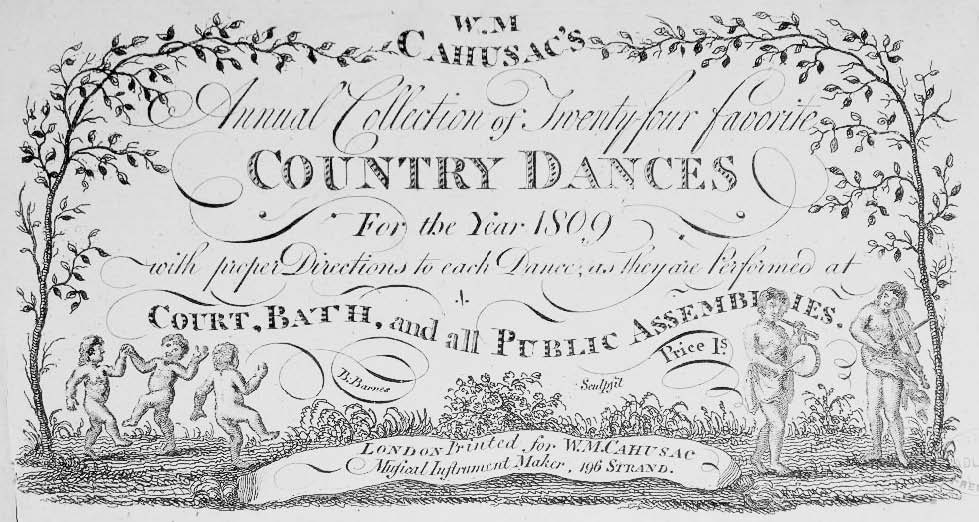 W.M
CAHUSAC'S
Annual Collection of Twenty-four favorite
COUNTRY DANCES
For the Year 1809
with proper Directions to each Dance, as they are Performed at
COURT, BATH, and all PUBLIC ASSEMBLIES.
Price 1s.
B. Barnes Sculpsit
LONDON Printed for W.M. CAHUSAC
Musical Instrument Maker, 196 STRAND.